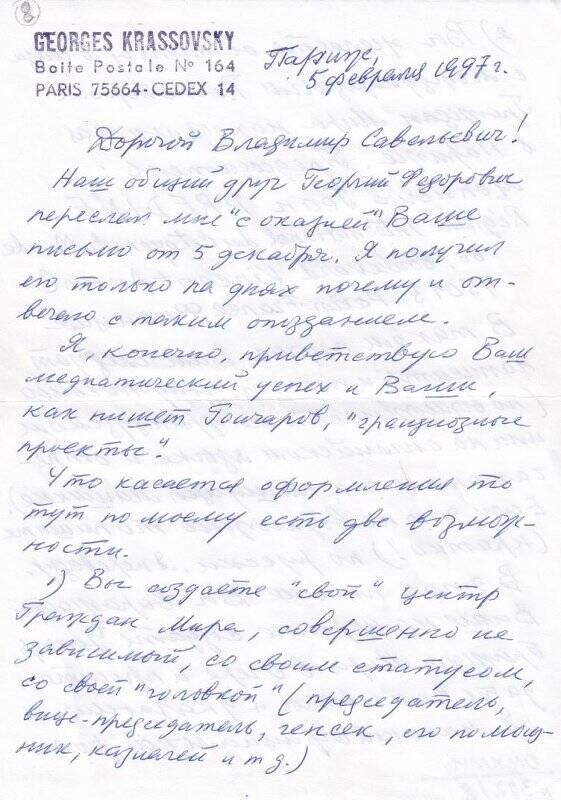 2
GEORGES KRASSOVSKY
Boite Postale No 164
PARIS 75664-CEDEX 14
Париж,
5 февраля 1997 г.
Дорогой Владимир Савельевич!
Наш общий друг Георгий Федорович
переслал мне "с оказией" Ваше
письмо от 5 декабря. Я получил
его только на днях почему и от-
вечаю с таким опозданием.
Я, конечно, приветствую Ваш
медиатический успех и Ваши,
как пишет Гончаров, "грандиозные
проекты".
Что касается оформления то
тут по моему есть две возмож-
ности.
1) Вы создаете "свой" центр
Граждан Мира, совершенно не
зависимый, со своим статусом,
со своей "головкой" (председатель,
вице-председатель, генсек, его помощ-
ник, казначей и т д.)